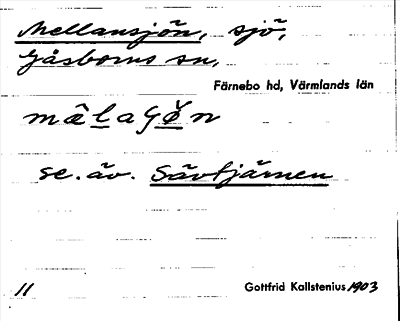 Mellansjön, sjö,
Gåsborns sn,
Färnebo hd, Värmlands län
se. äv. Sävtjärnen
11
Gottfrid Kallstenius 1903